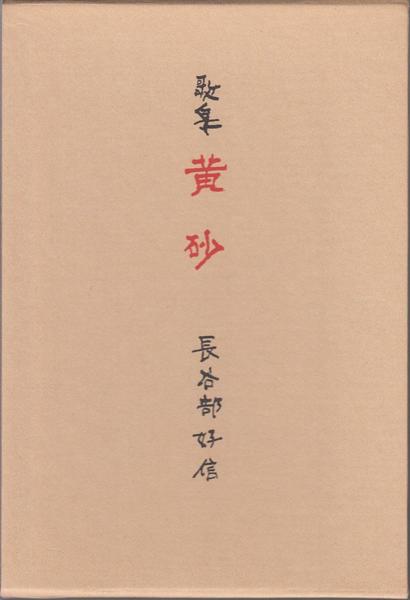 歌集 黄砂 長谷部好信